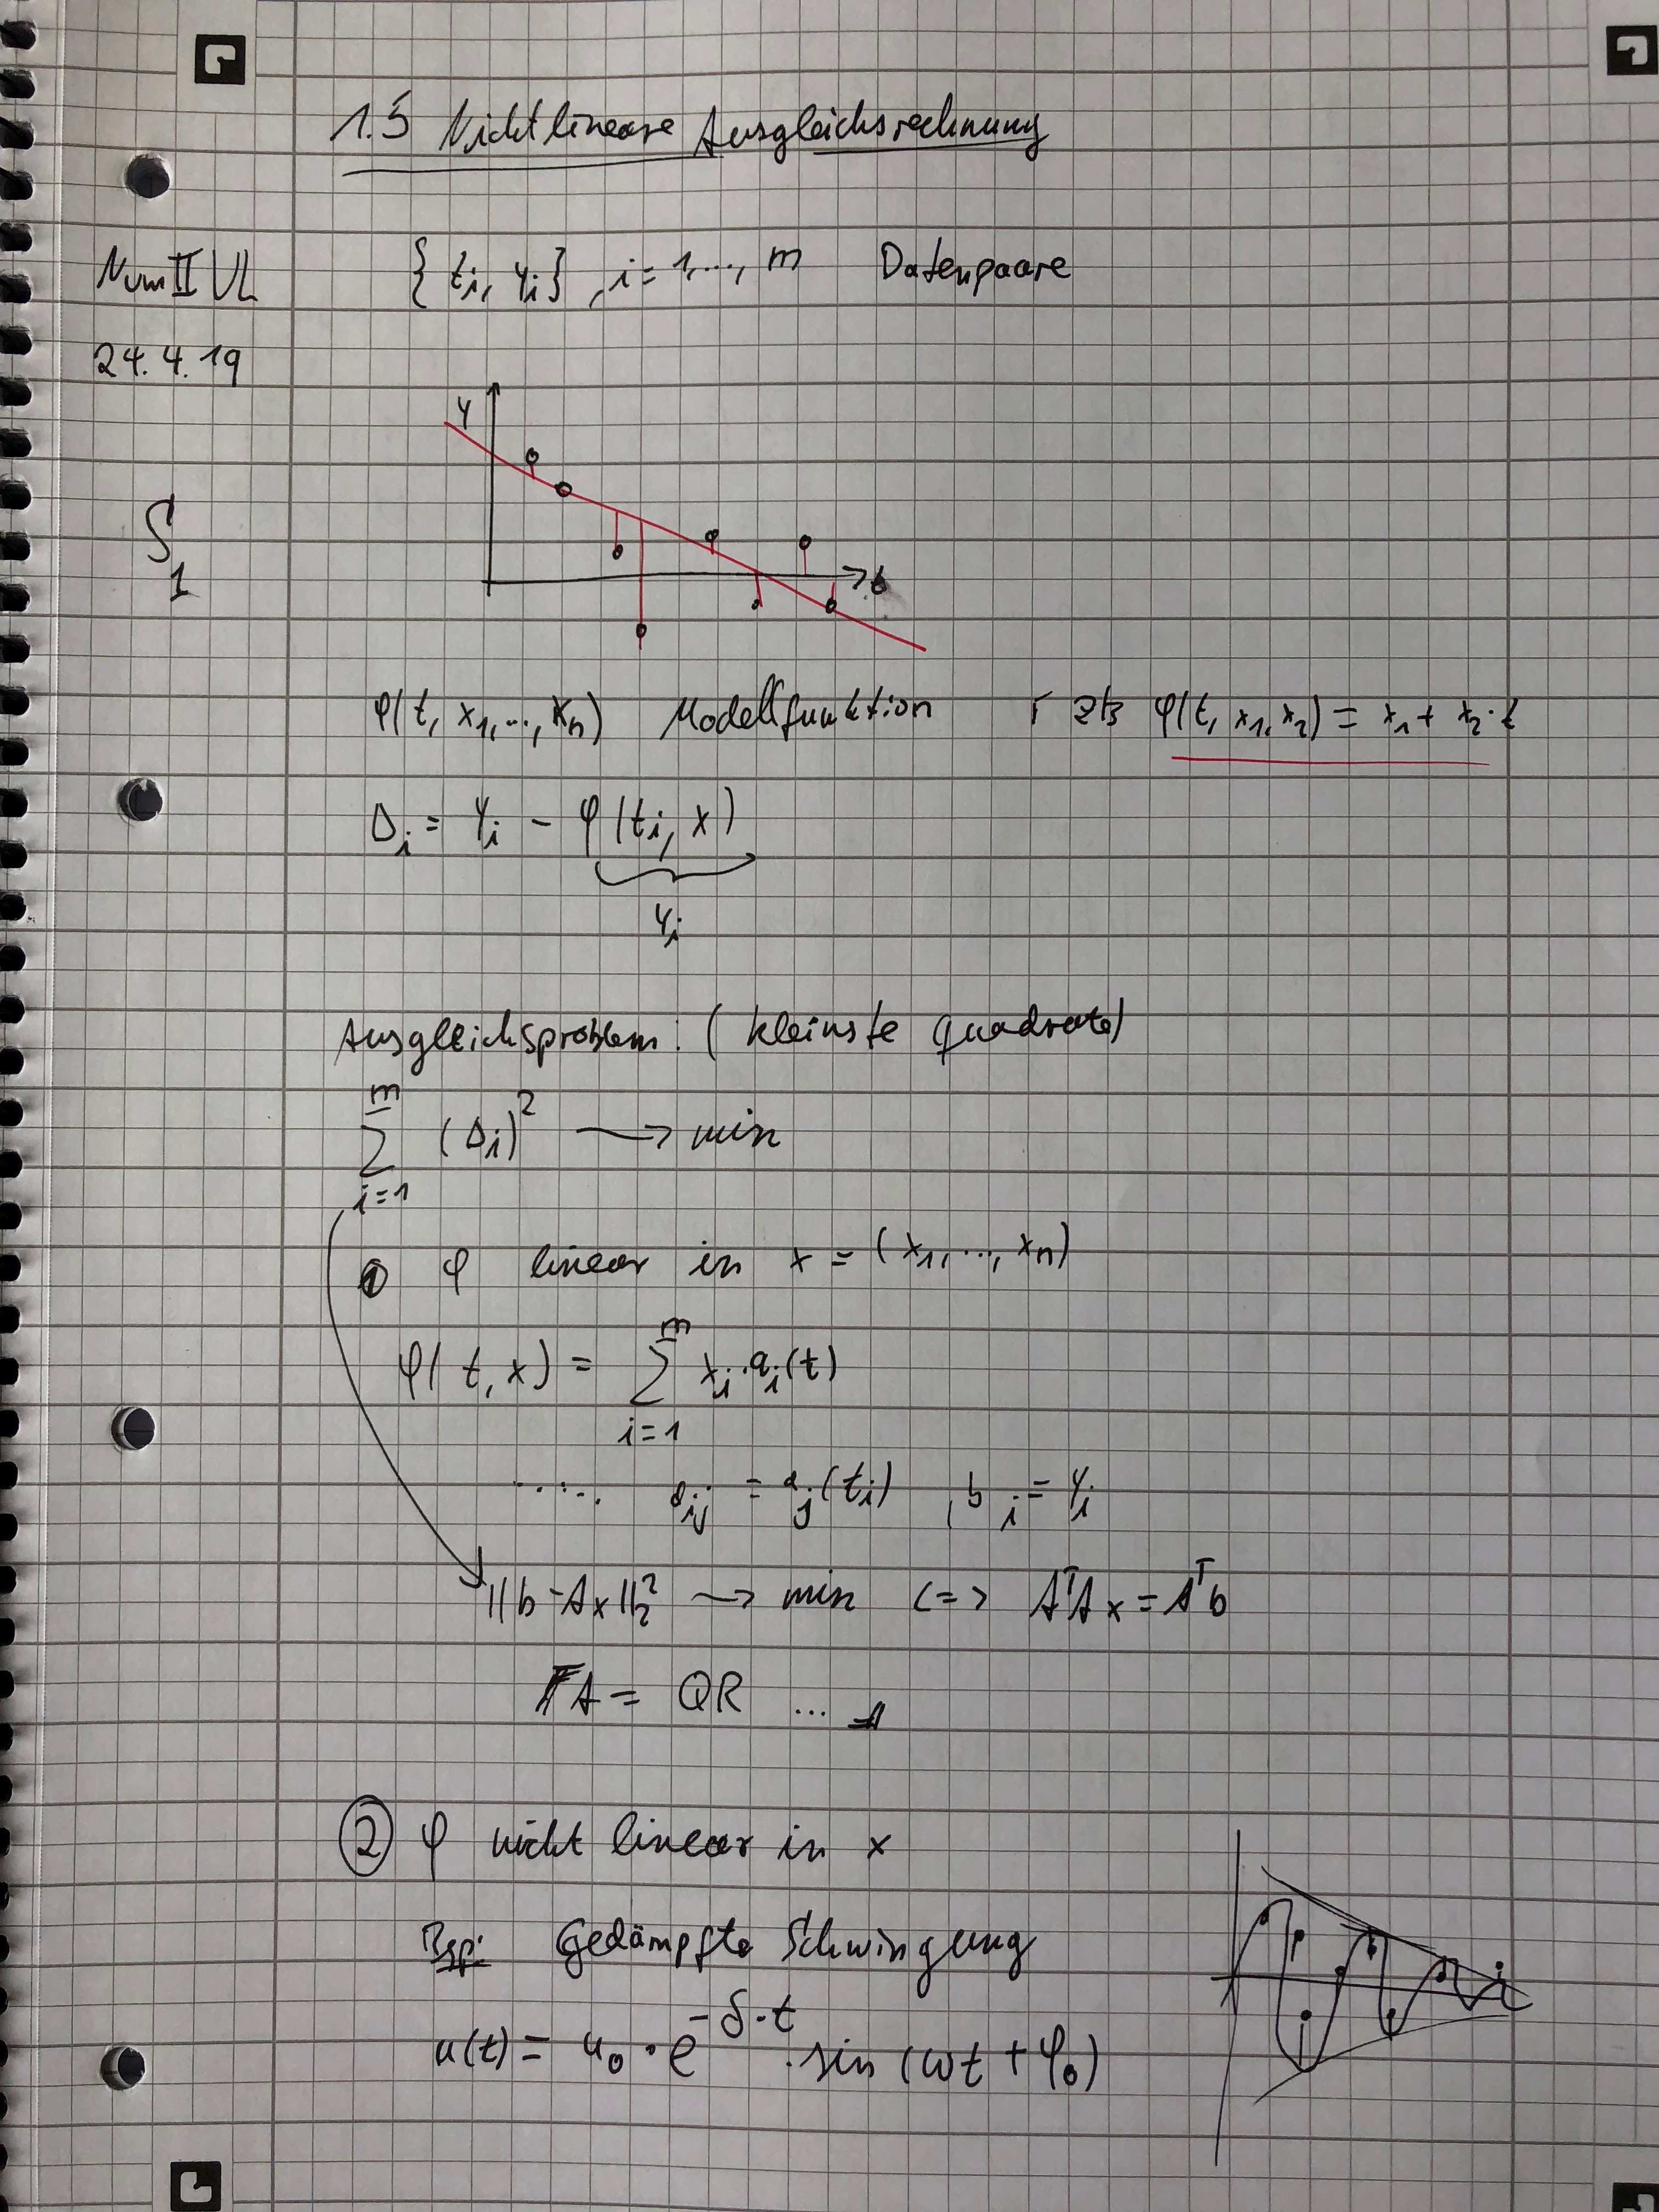 1.5 Nichtlineare Ausgleichsrechnung
Num II VL
{ti, yi}, i = 1, ..., m Datenpaare
24.4.19
y
S1
t
φ(t, x1, ..., xn) Modellfunktion ┌ zB φ(t, x1, x2) = x1 + x2·t
Δi = yi - φ(ti, x)
yi
Ausgleichsproblem: (kleinste Quadrate)
∑_{i=1}^{m} (Δi)² → min
① φ linear in x = (x1, ..., xn)
φ(t, x) = ∑_{i=1}^{m} xi·ai(t)
..... aij = aj(ti), bi = yi
||b - Ax||₂² → min <=> AᵀAx = Aᵀb
┌ A = QR ... ┘
② φ nicht linear in x
Bsp: Gedämpfte Schwingung
u(t) = u0 · e^{-δ·t} · sin(ωt + φ0)